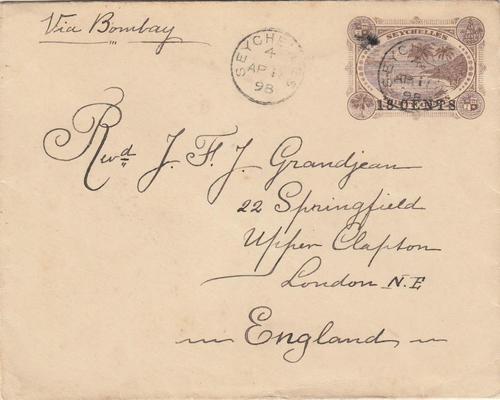 Via Bombay
SEYCHELLES
4
AP 1
98
SEYCHELLES
18 CENTS
Revd J. F. J. Grandjean
22 Springfield
Upper Clapton
London N.E
England